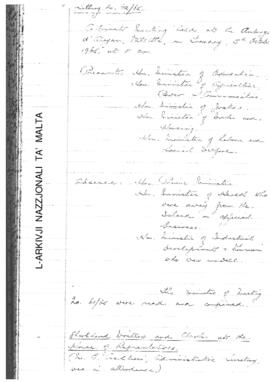 L-ARKIVJI NAZZJONALI TA' MALTA
Meeting No. /65
Cabinet Meeting held at the Auberge
d'Aragon, Valletta, on Tuesday, 5th October
1965, at 8 am
Present: Hon. Minister of Education
Hon. Minister of Agriculture,
Power & Communications
Hon. Minister of Justice
Hon. Minister of Works and
Housing
Hon. Minister of Labour and
Social Welfare.
Absent: Hon. Prime Minister
Hon. Minister of Health who
were away from the
Island on official
business
Hon. Minister of Industrial
Development & Tourism
who was unwell.
The minutes of Meeting
No. /65 were read and confirmed.
and Clerks at the
House of Representatives
Administrative Secretary,
was in attendance)